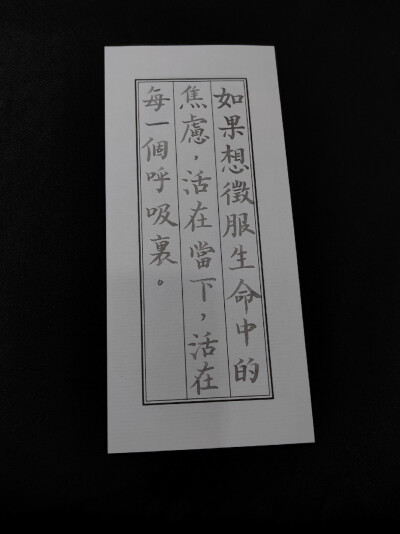 如果想徵服生命中的
焦慮，活在當下，活在
每一個呼吸裏。